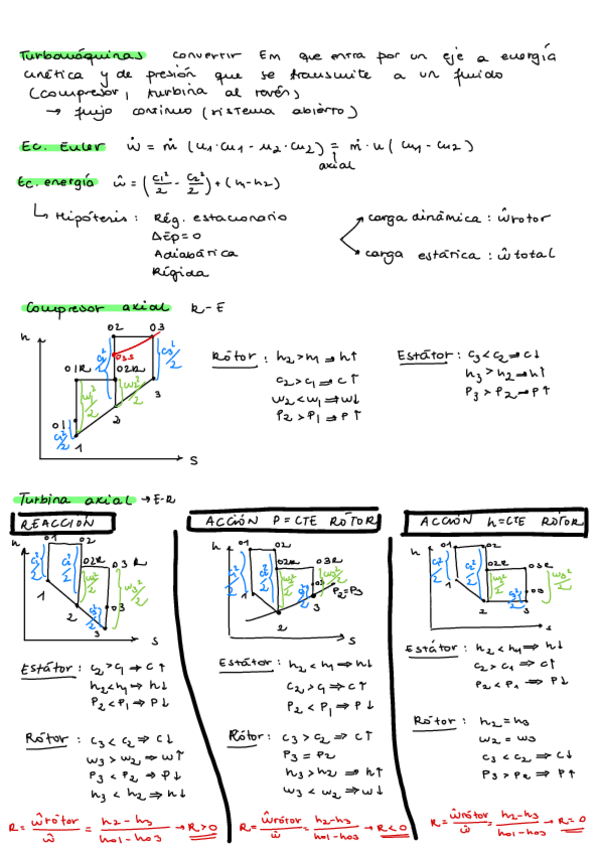 Turbomáquinas convertir Em que entra por un eje a energía
cinética y de presión que se transmite a un fluido
(compresor, turbina al revés)
→ flujo continuo (sistema abierto)
Ec. Euler ẇ = ṁ (u1·cu1 - u2·cu2) = ṁ·u (cu1 - cu2)
axial
Ec. energía ŵ = (c1²/2 - c2²/2) + (h1-h2)
Hipótesis: Rég. estacionario
ΔEp=0
Adiabática
Rígida
carga dinámica: ŵrotor
carga estática: ŵtotal
Compresor axial R-E
h
02 03
03s
01R 02R
01
1 2 3
c1²/2 w1²/2 c2²/2 w2²/2 c3²/2
s
Rótor: h2>h1 ⇒ h↑
c2>c1 ⇒ c↑
w2<w1 ⇒ w↓
P2>P1 ⇒ P↑
Estátor: c3<c2 ⇒ c↓
h3>h2 ⇒ h↑
P3>P2 ⇒ P↑
Turbina axial → E-R
REACCIÓN
h
01 02
02R 03R
03
1 2 3
c1²/2 c2²/2 w2²/2 c3²/2 w3²/2
s
Estátor: c2>c1 ⇒ c↑
h2<h1 ⇒ h↓
P2<P1 ⇒ P↓
Rótor: c3<c2 ⇒ c↓
w3>w2 ⇒ w↑
P3<P2 ⇒ P↓
h3<h2 ⇒ h↓
R = ŵrótor/ŵ = h2-h3/h01-h03 → R>0
ACCIÓN P=CTE RÓTOR
h
01 02
02R 03R
03
1 2 3
c1²/2 c2²/2 w2²/2 c3²/2 w3²/2
P2=P3
s
Estátor: h2<h1 ⇒ h↓
c2>c1 ⇒ c↑
P2<P1 ⇒ P↓
Rótor: c3>c2 ⇒ c↑
P3=P2
h3>h2 ⇒ h↑
w3<w2 ⇒ w↓
R = ŵrótor/ŵ = h2-h3/h01-h03 → R<0
ACCIÓN h=CTE RÓTOR
h
01 02
02R 03R
03
1 2 3
c1²/2 c2²/2 w2²/2 c3²/2 w3²/2
s
Estátor: h2<h1 ⇒ h↓
c2>c1 ⇒ c↑
P2<P1 ⇒ P↓
Rótor: h2=h3
w2=w3
c3<c2 ⇒ c↓
P3>P2 ⇒ P↑
R = ŵrótor/ŵ = h2-h3/h01-h03 → R=0